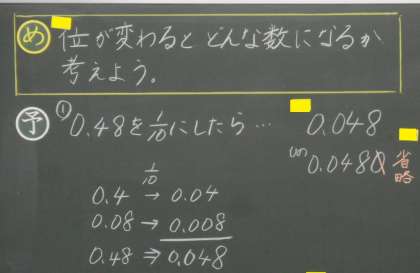 め 位が変わるとどんな数になるか
考えよう。
予 ① 0.48を1/10にしたら… 0.048
0.0480 省略
1/10
0.4 → 0.04
0.08 → 0.008
0.48 ⇒ 0.048